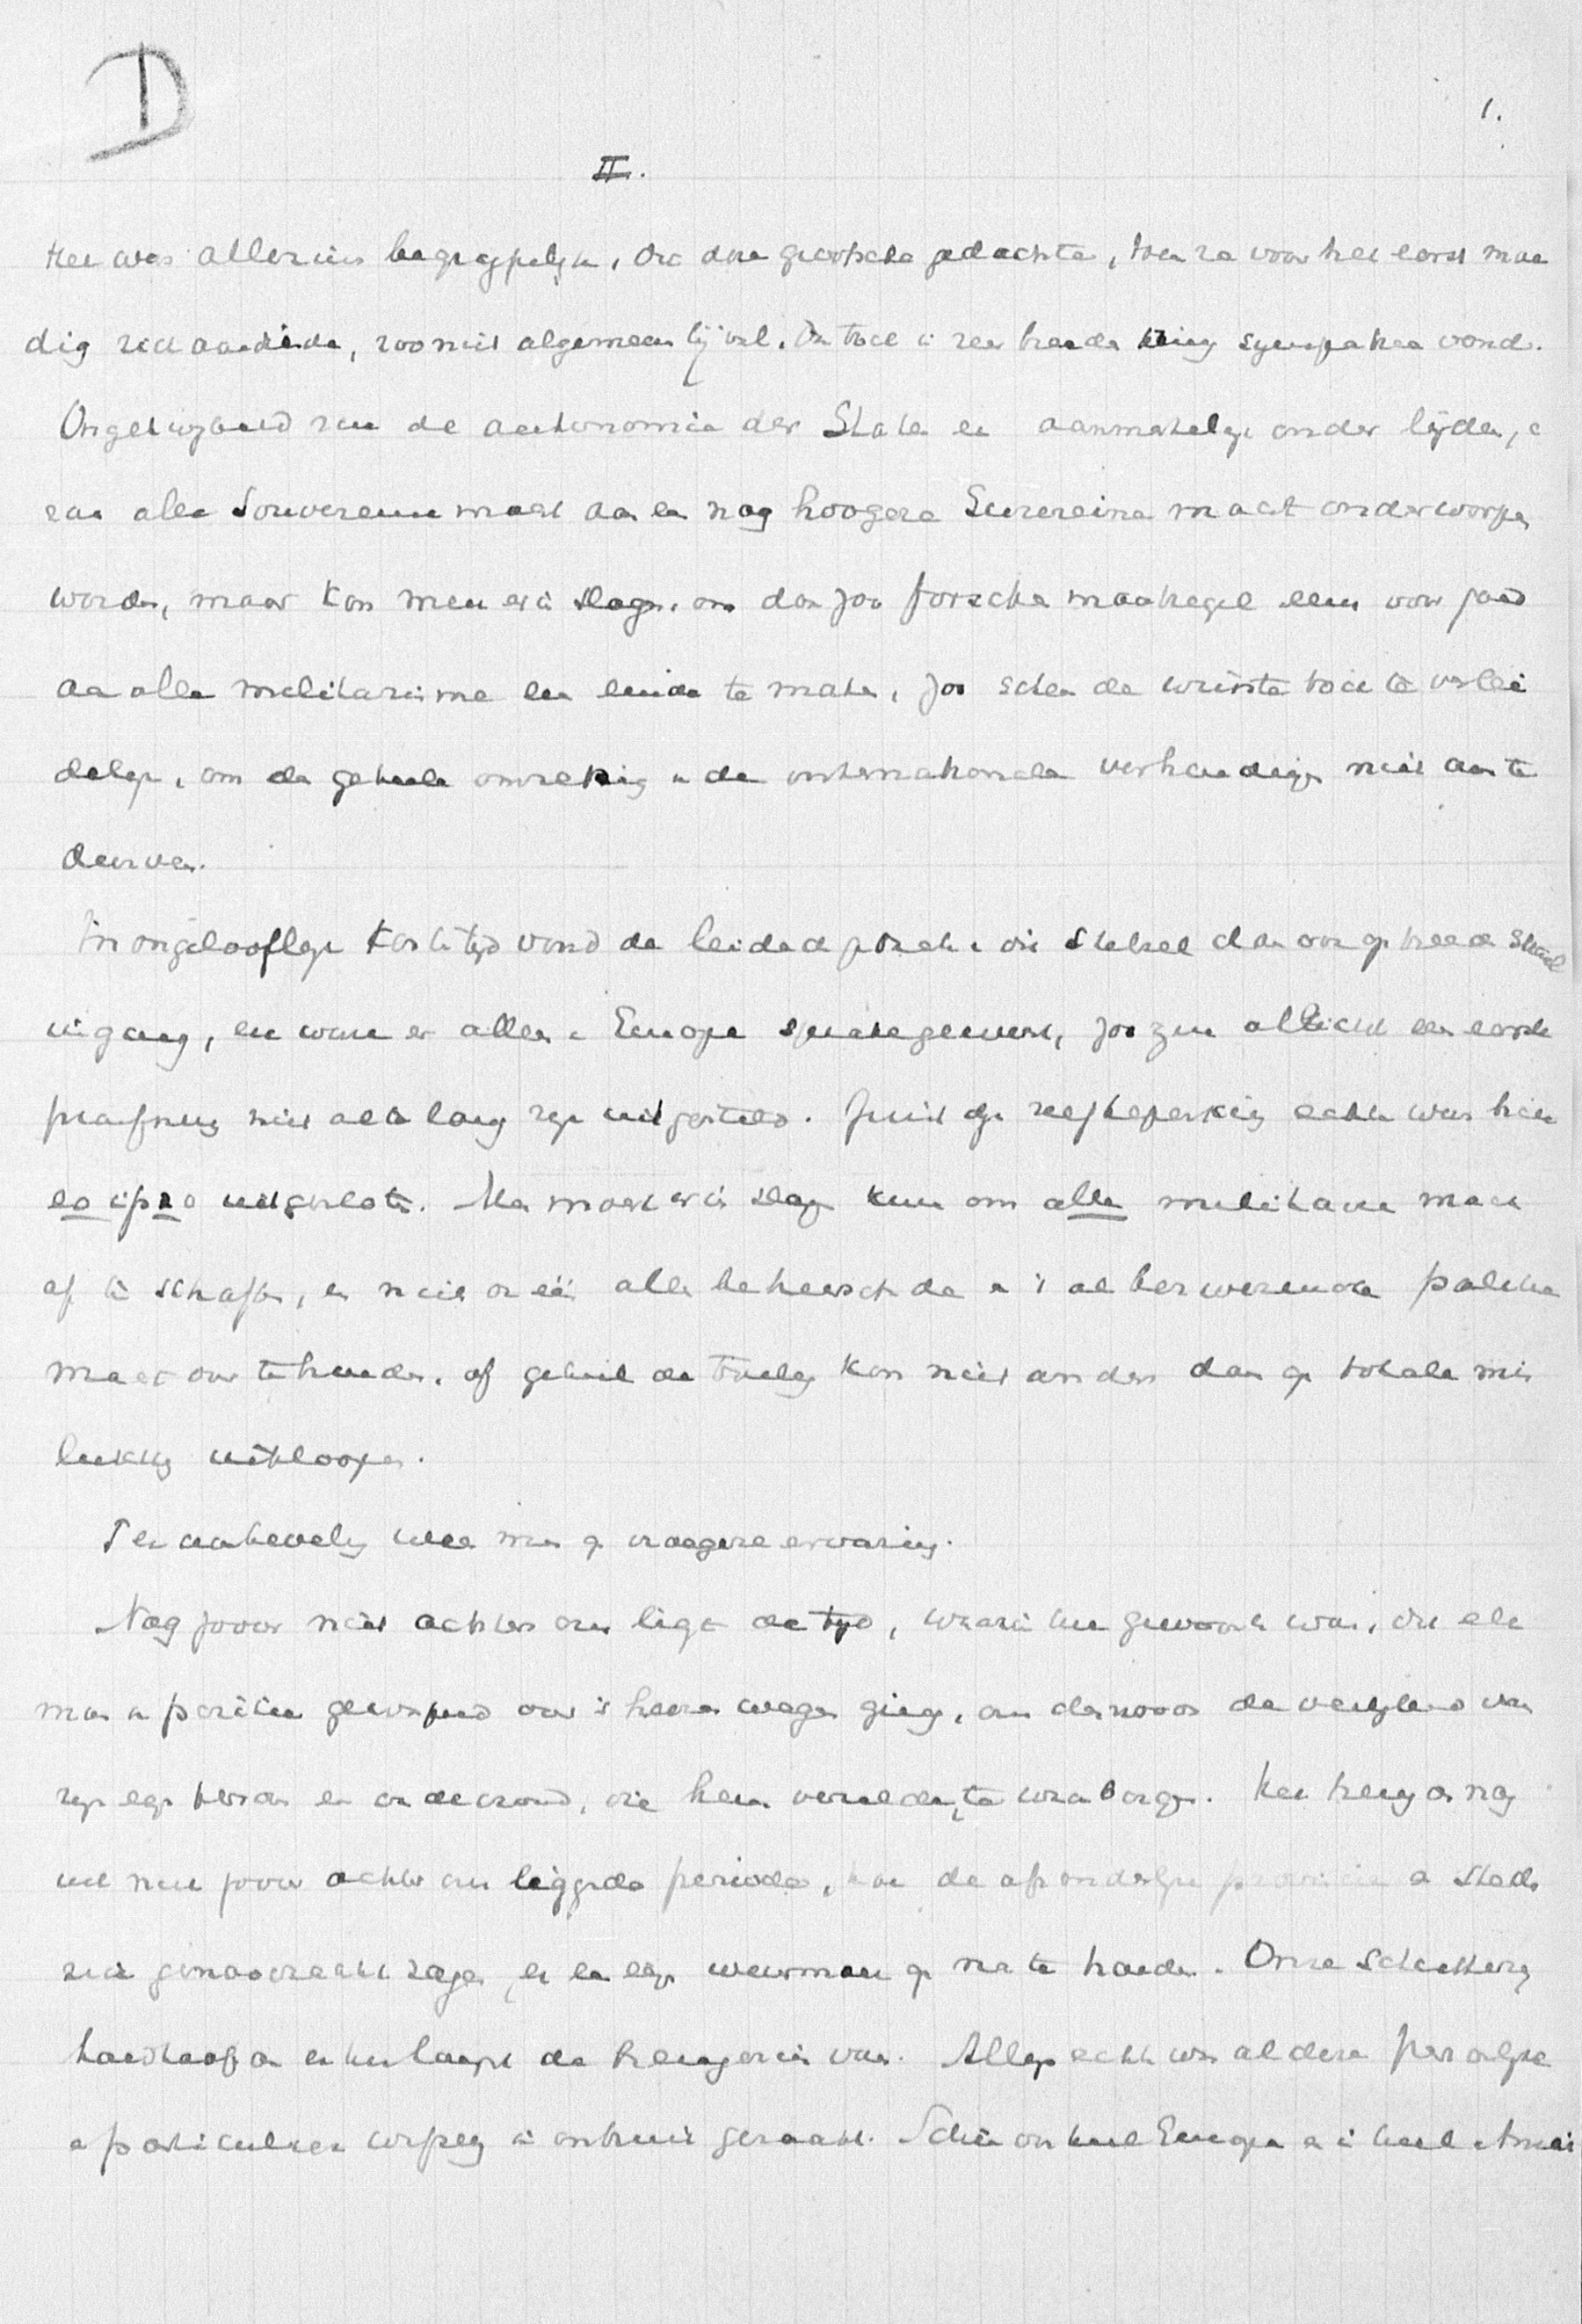 D
1.
II.
Het was allerzins begrijpelijk, dat deze grootsche gedachte, toen ze voor het eerst maa
dig zich aandiende, zoo niet algemeen bijval, dan toch in zeer breede kring sympathie vond.
Ongetwijfeld zou de autonomie der Staten er aanmerkelijk onder lijden, en
zou alle Souvereine macht aan een nog hoogere Souvereine macht onderworpen
worden, maar kon men er in slagen, om door zoo forsche maatregel eens voor goed
aan alle militarisme een einde te maken, zoo scheen de winste toch te verlei
delijk, om de geheele omzetting in de internationale verhoudingen niet aan te
durven.
In ongelooflijk korten tijd vond de leidende gedachte die stelsel dan ook op breede schaal
ingang, en ware er alleen in Europa sprake geweest, zoo zou allicht een eerste
proefneming niet al te lang zijn uitgesteld. Juist die zelfbeperking echter was hier
eo ipso uitgesloten. Men moest er in slagen kunnen om alle militaire macht
af te schaffen, en niet dan één alles beheerschende en 's al beteugelende politie
macht over te houden, of geheel de toeleg kon niet anders dan op totale mis
lukking uitloopen.
Ter aanbeveling wees men op vroegere ervaring.
Nog zoover niet achter ons ligt de tijd, waarin het gewoonte was, dat elk
man in positie gewapend over 's heeren wegen ging, om daardoor de veiligheid van
zijn eigen persoon en van de vrouw, die hem verzelde, te waarborgen. Het heugt ons nog
uit niet zoover achter ons liggende periode, hoe de afzonderlijke provincie en stede
zich genoodzaakt zagen, er een eigen weermacht op na te houden. Onze Schutterij
handhaaft er ten laatste de heugenis van. Allengs echter was al deze persoonlijke
en particuliere wapening in onbruik geraakt. Schier over heel Europa en in heel Ameri